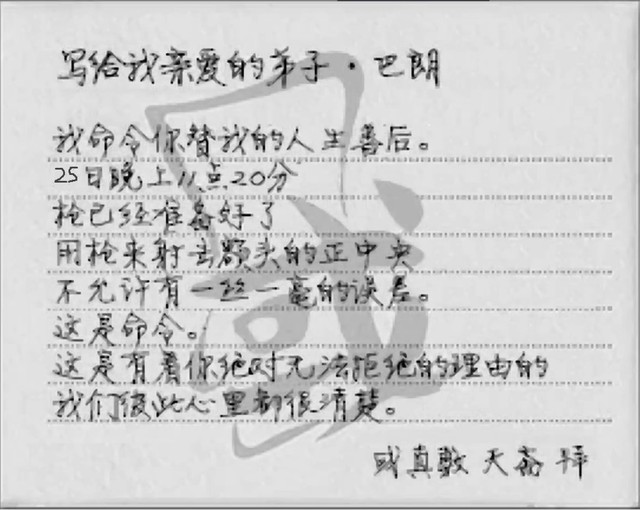 写给我亲爱的弟子·巴朗
我命令你替我的人生善后。
25日晚上八点20分
枪已经准备好了
用枪来射击额头的正中央
不允许有一丝一毫的误差。
这是命令。
这是有着你绝对无法拒绝的理由的
我们彼此心里都很清楚。
或真敷 天斋
或